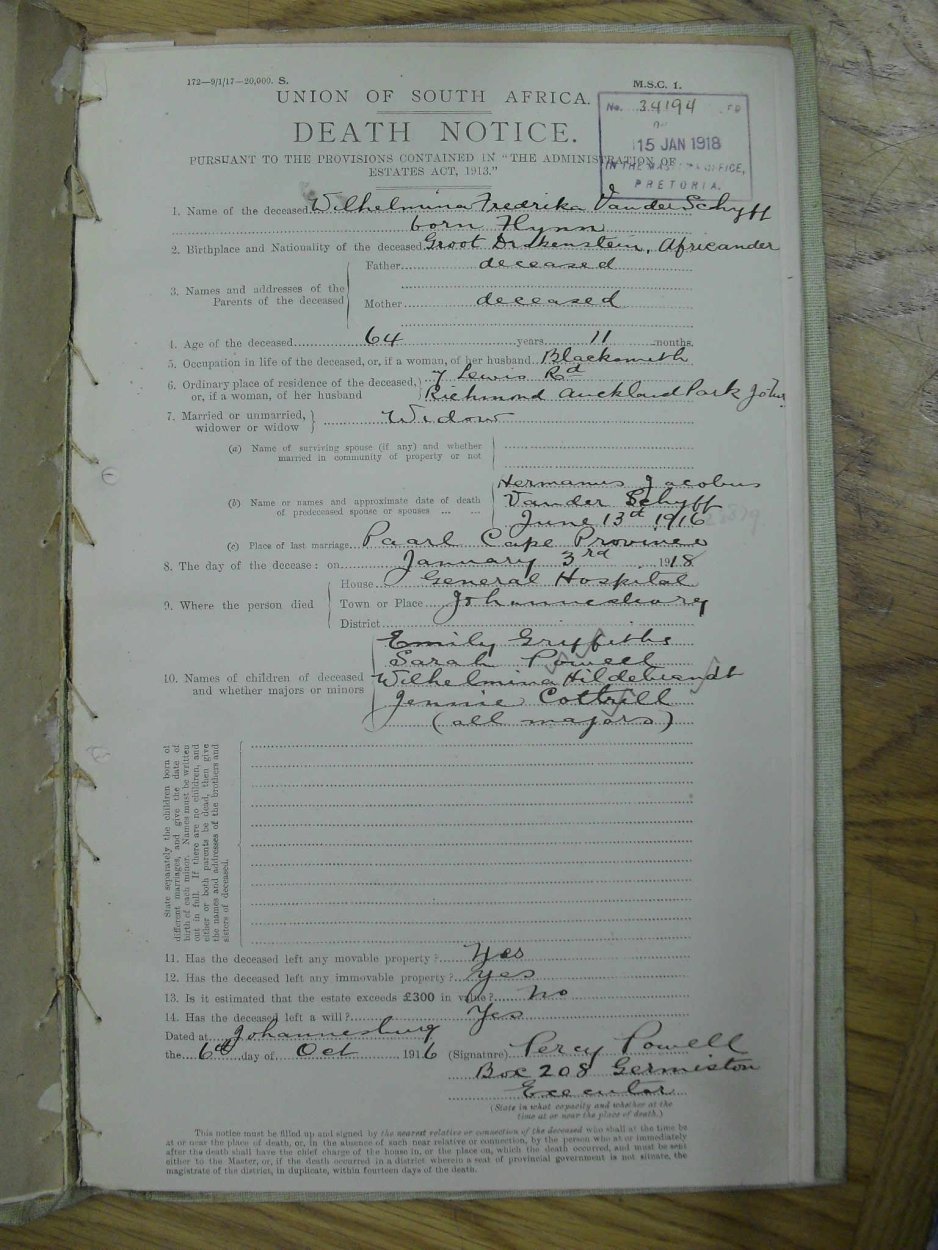 172—9/1/17—20,000. S.
M.S.C. 1.
UNION OF SOUTH AFRICA.
No. 34194
15 JAN 1918
IN THE MASTER'S OFFICE,
PRETORIA.
DEATH NOTICE.
PURSUANT TO THE PROVISIONS CONTAINED IN "THE ADMINISTRATION OF
ESTATES ACT, 1913."
1. Name of the deceased Wilhelmina Fredrika Van der Schyff
born Flynn
2. Birthplace and Nationality of the deceased Groot Drakenstein, Africander
3. Names and addresses of the Parents of the deceased
Father deceased
Mother deceased
4. Age of the deceased 64 years 11 months.
5. Occupation in life of the deceased, or, if a woman, of her husband Blacksmith
6. Ordinary place of residence of the deceased, 7 Lewis Rd
or, if a woman, of her husband Richmond Auckland Park
7. Married or unmarried, widower or widow Widow
(a) Name of surviving spouse (if any) and whether
married in community of property or not
Hermanus Jacobus
(b) Name or names and approximate date of death Van der Schyff
of predeceased spouse or spouses ... ... June 13th 1916
(c) Place of last marriage Paarl Cape Province
8. The day of the decease: on January 3rd 1918
9. Where the person died
House General Hospital
Town or Place Johannesburg
District
Emily Griffiths
Sarah Powell
10. Names of children of deceased Wilhelmina Hildebrandt
and whether majors or minors Jennie Cottrill
(all majors)
State separately the children born of
different marriages, and give the date of
birth of each minor. Names must be written
out in full. If there are no children, and
either or both parents be dead, then give
the names and addresses of the brothers and
sisters of deceased.
11. Has the deceased left any movable property? Yes
12. Has the deceased left any immovable property? Yes
13. Is it estimated that the estate exceeds £300 in value? No
14. Has the deceased left a will? Yes
Dated at Johannesburg
the 6th day of Oct 1916 (Signature) Percy Powell
Box 208 Germiston
Executor
(State in what capacity and whether at the
time at or near the place of death.)
This notice must be filled up and signed by the nearest relative or connection of the deceased who shall at the time be
at or near the place of death, or, in the absence of such near relative or connection, by the person who at or immediately
after the death shall have the chief charge of the house in, or the place on, which the death occurred, and must be sent
either to the Master, or, if the death occurred in a district wherein a seat of provincial government is not situate, the
magistrate of the district, in duplicate, within fourteen days of the death.